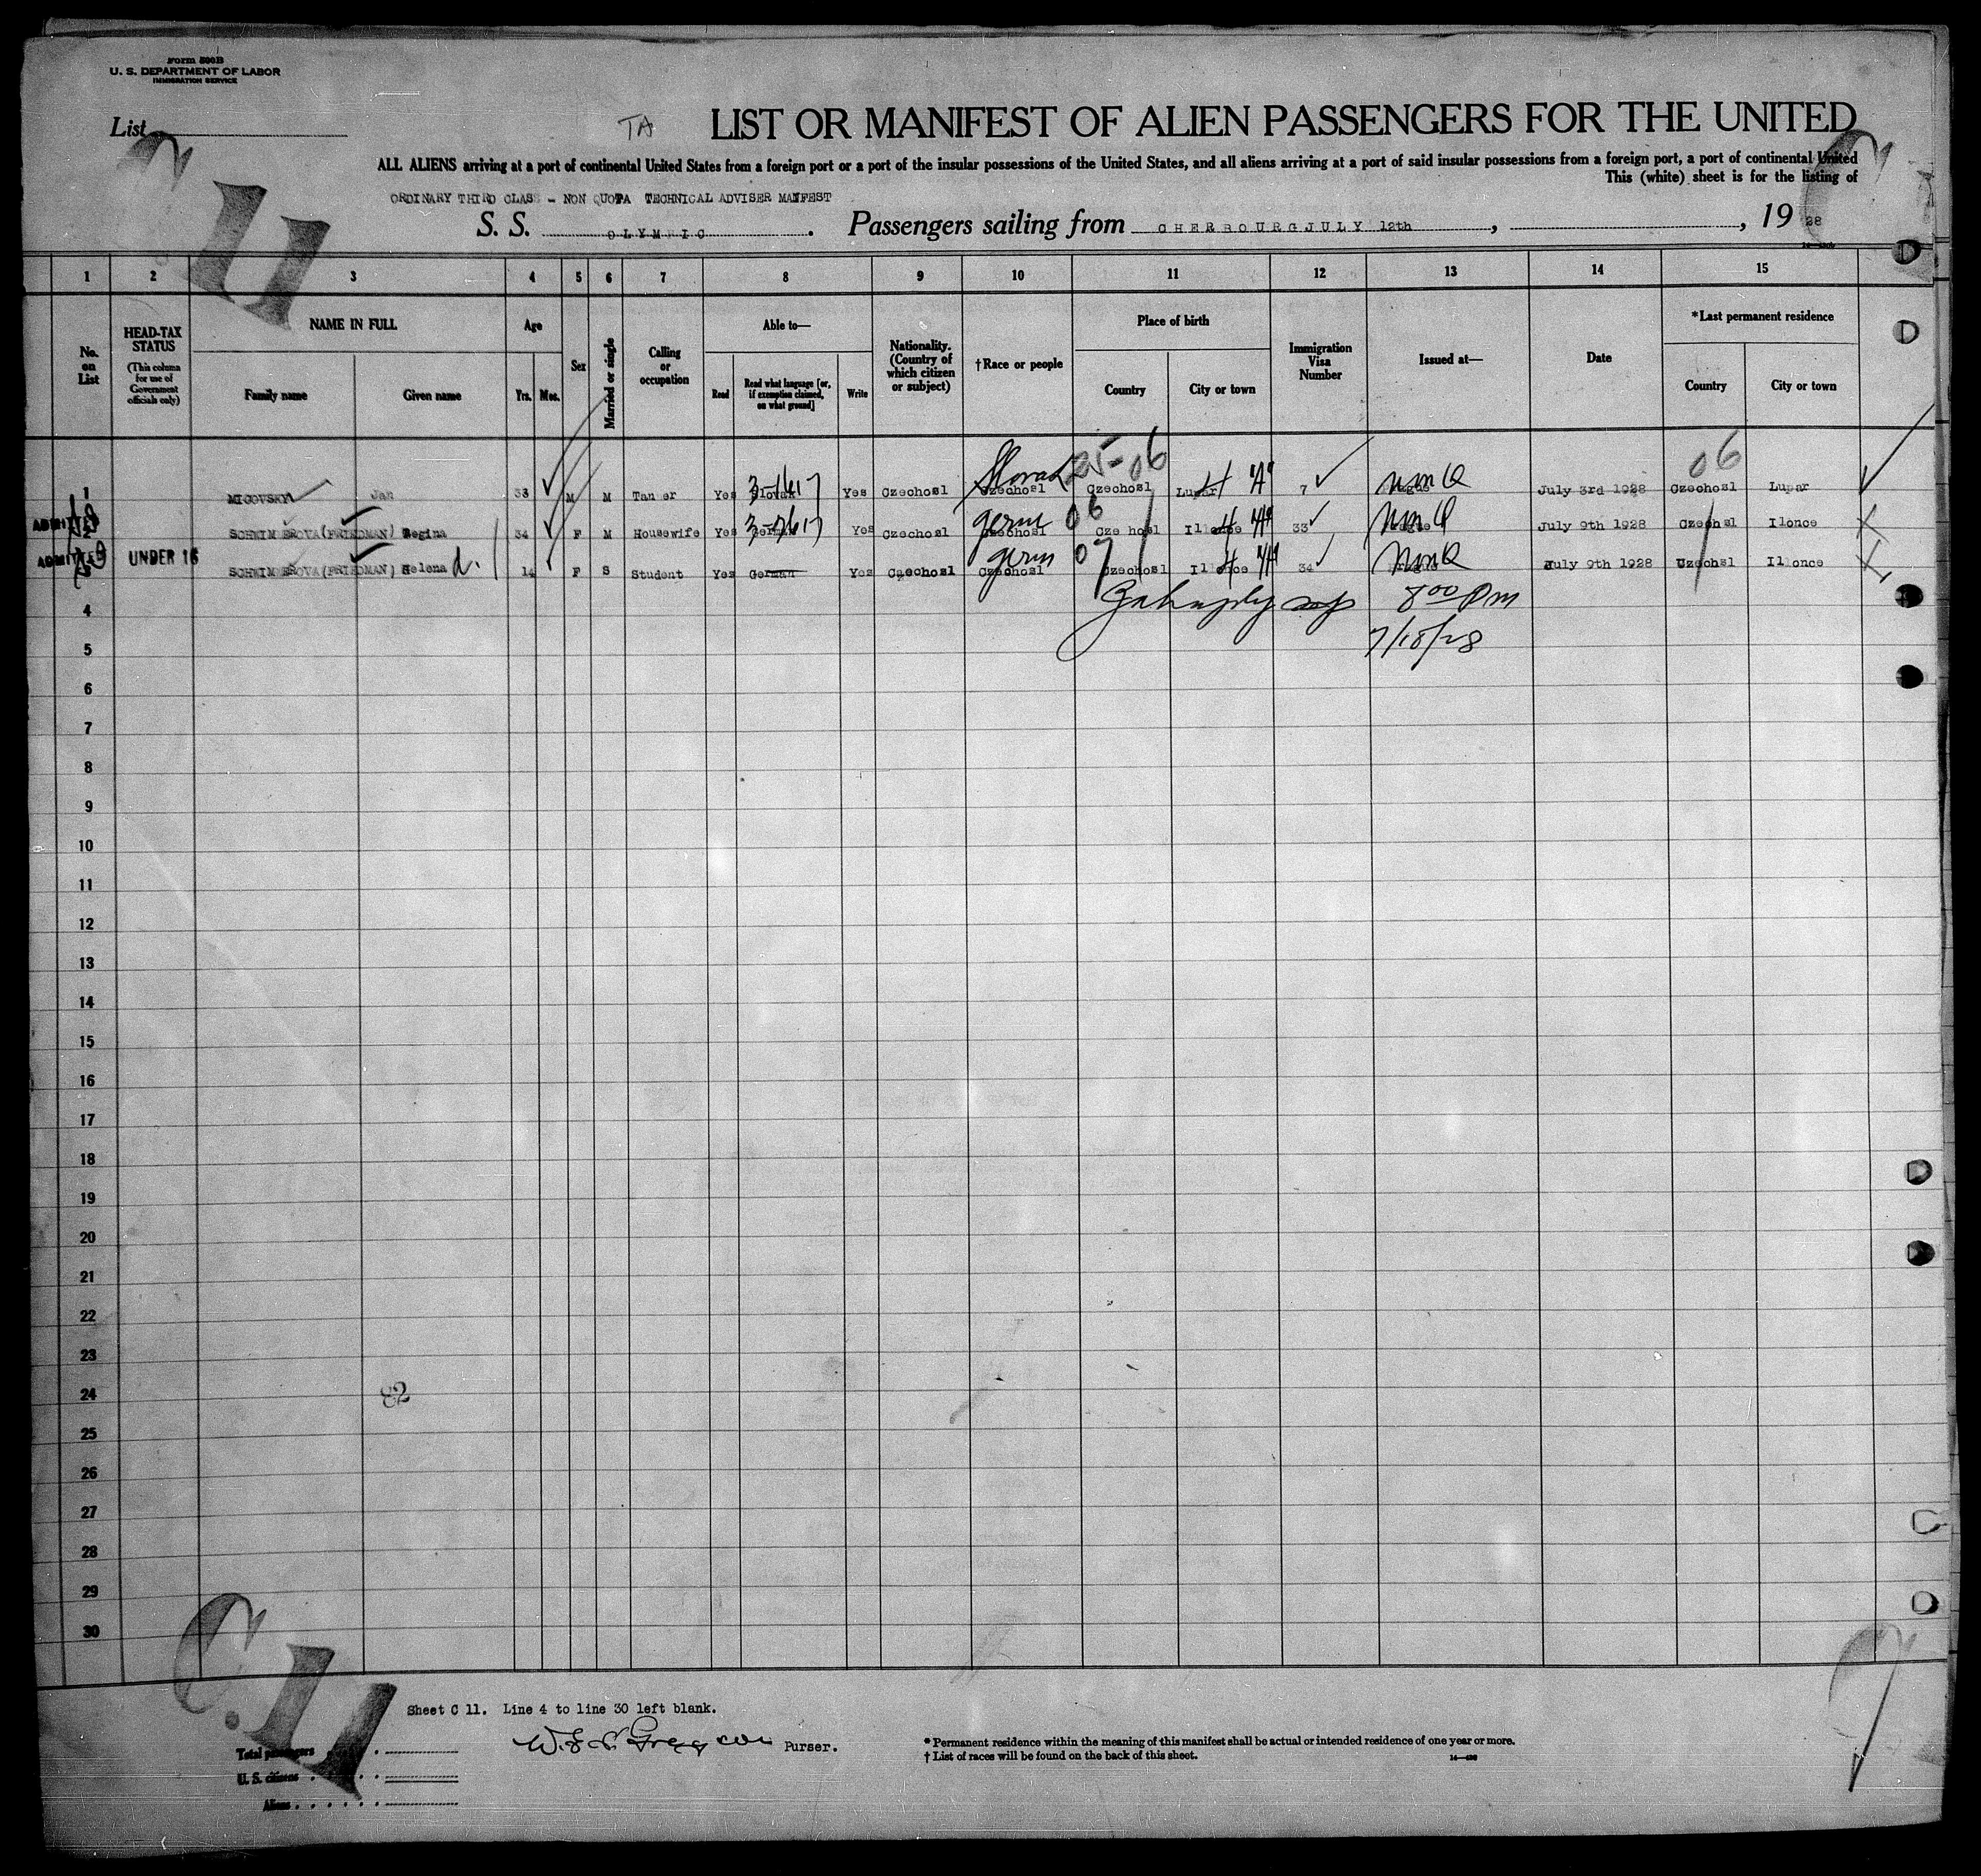 Form 500B
U. S. DEPARTMENT OF LABOR
IMMIGRATION SERVICE
List
TA
LIST OR MANIFEST OF ALIEN PASSENGERS FOR THE UNITED
ALL ALIENS arriving at a port of continental United States from a foreign port or a port of the insular possessions of the United States, and all aliens arriving at a port of said insular possessions from a foreign port, a port of continental United
This (white) sheet is for the listing of
ORDINARY THIRD CLASS - NON QUOTA TECHNICAL ADVISER MANFEST
S. S. OLYMPIC. Passengers sailing from CHERBOURG JULY 12th, , 19 28
1 2 3 4 5 6 7 8 9 10 11 12 13 14 15
No. on List
HEAD-TAX STATUS
(This column for use of Government officials only)
NAME IN FULL
Family name Given name
Age
Yrs. Mos.
Sex
Married or single
Calling or occupation
Able to—
Read
Read what language [or, if exemption claimed, on what ground]
Write
Nationality. (Country of which citizen or subject)
†Race or people
Place of birth
Country City or town
Immigration Visa Number
Issued at—
Date
*Last permanent residence
Country City or town
Slovak 25-06 06
1 MICOVSKY Jan 33 M M Tan er Yes Slovak Yes Czechosl Czechosl Czechosl Lupar 7 July 3rd 1928 Czechosl Lupar
germ 06
ADMITTED 2 SCHWIM EROVA (FRIEDMAN) Regina 34 F M Housewife Yes German Yes Czechosl Czechosl Cze hosl Illonce 33 July 9th 1928 Czechsl Ilonce
germ 07
ADMITTED 3 UNDER 16 SCHWIM EROVA (FRIEDMAN) Helena d. 14 F S Student Yes German Yes Czechosl Czechosl Czechosl Illonce 34 July 9th 1928 Czechsl Illonce
4 8 00 Pm
5 7/18/28
6
7
8
9
10
11
12
13
14
15
16
17
18
19
20
21
22
23
24
25
26
27
28
29
30
C.11
Sheet C 11. Line 4 to line 30 left blank.
Purser.
Total passengers
U. S. citizens
Aliens
* Permanent residence within the meaning of this manifest shall be actual or intended residence of one year or more.
† List of races will be found on the back of this sheet.